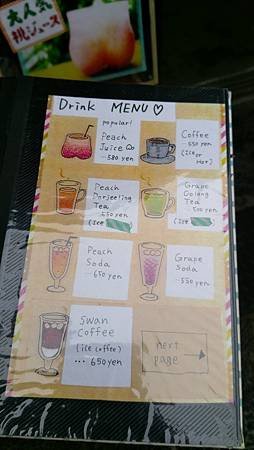 大人気
桃ジュース
Drink MENU♡
popular!
Peach
Juice
…580yen
Coffee
…550yen
(Ice
or
Hot)
Peach
Darjeeling
Tea
…650yen
(Ice
Grape
Oolong
Tea
(Ice
Peach
Soda
…650yen
Grape
Soda
…550yen
Swan
Coffee
(ice coffee)
…650yen
next
page
→